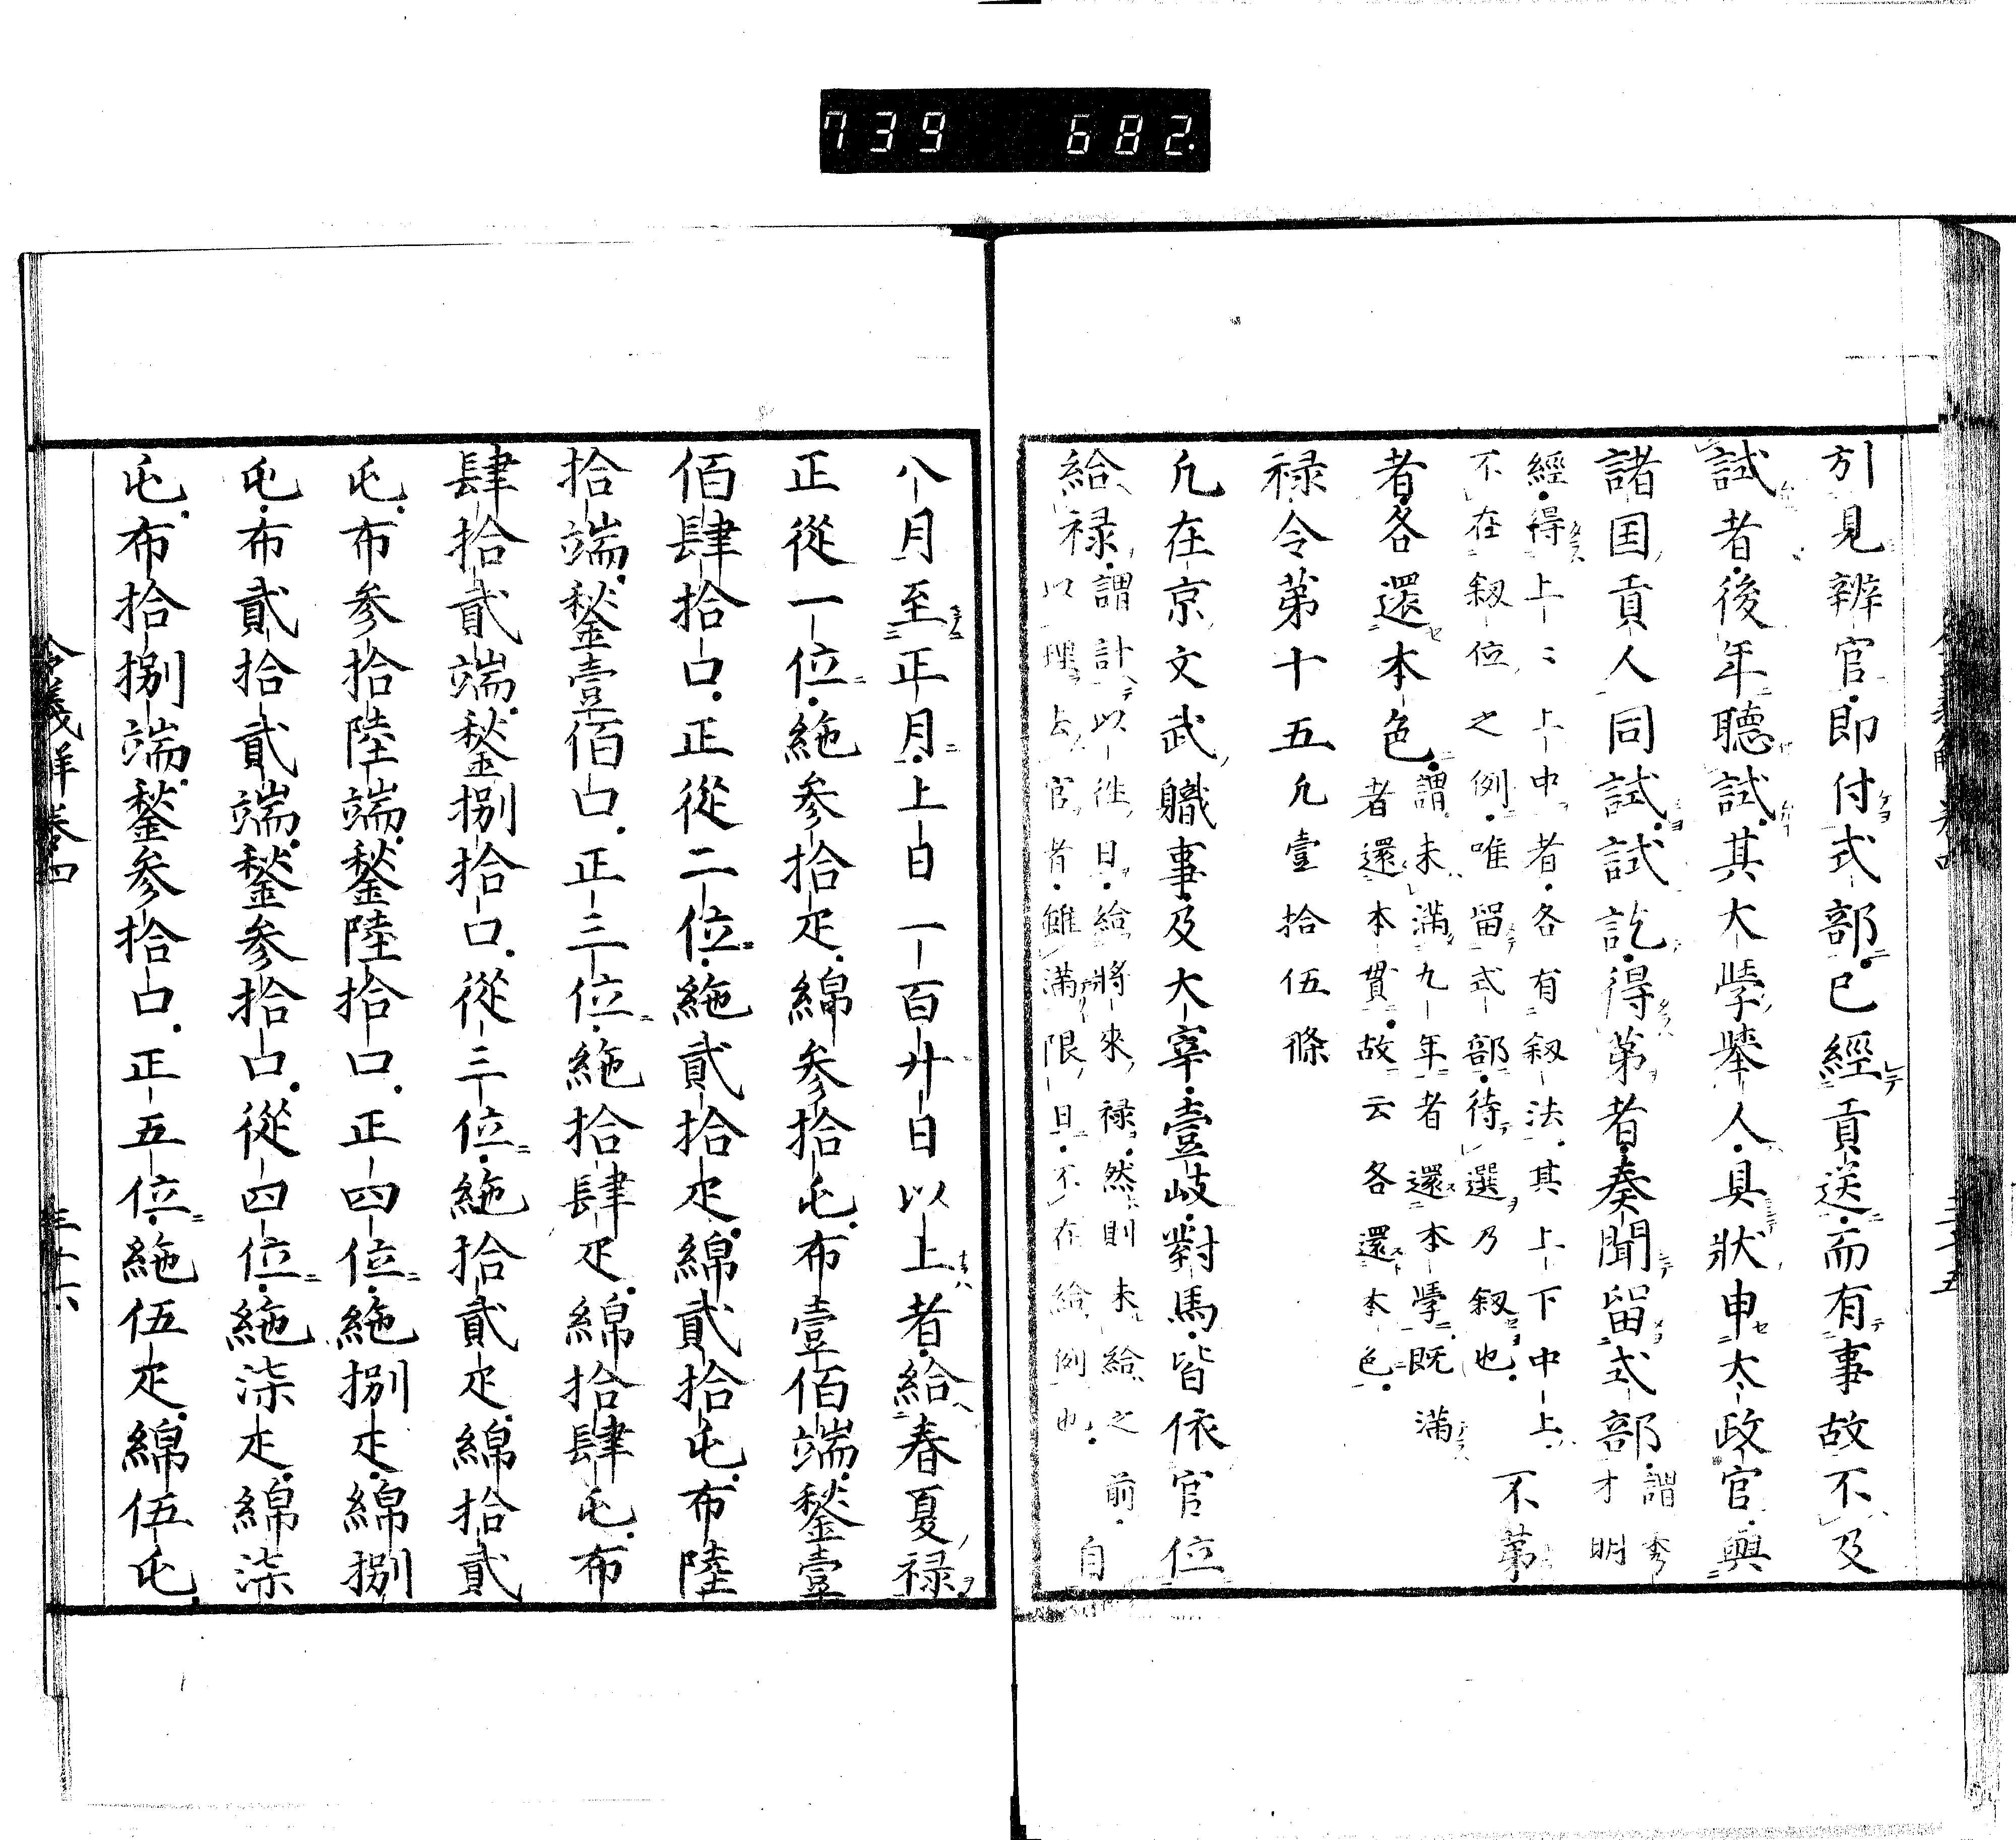 739 682
引見辨官即付式部已經貢送而有事故不及
試者後年聽試其大學舉人具狀申太政官與
諸国貢人同試試訖得第者奏聞留式部謂秀
才明
經得上上〻上中者各有叙法其上下中上
不在叙位之例唯留式部待選乃叙也
不第
者各還本色謂未滿九年者還本學既滿
者還本貫故云各還本色
禄令第十五凡壹拾伍條
凡在京文武軄事及大宰壹岐對馬皆依官位
給禄謂計以往日給將來禄然則未給之前
以理去官者雖滿限日不在給例也
自
八月至正月上日一百廾日以上者給春夏禄
正從一位絁参拾疋綿参拾屯布壹佰端鍫壹
佰肆拾口正從二位絁貳拾疋綿貳拾屯布陸
拾端鍫壹佰口正三位絁拾肆疋綿拾肆屯布
肆拾貳端鍫捌拾口從三位絁拾貳疋綿拾貳
屯布参拾陸端鍫陸拾口正四位絁捌疋綿捌
屯布貳拾貳端鍫参拾口從四位絁柒疋綿柒
屯布拾捌端鍫参拾口正五位絁伍疋綿伍屯
令義解卷四